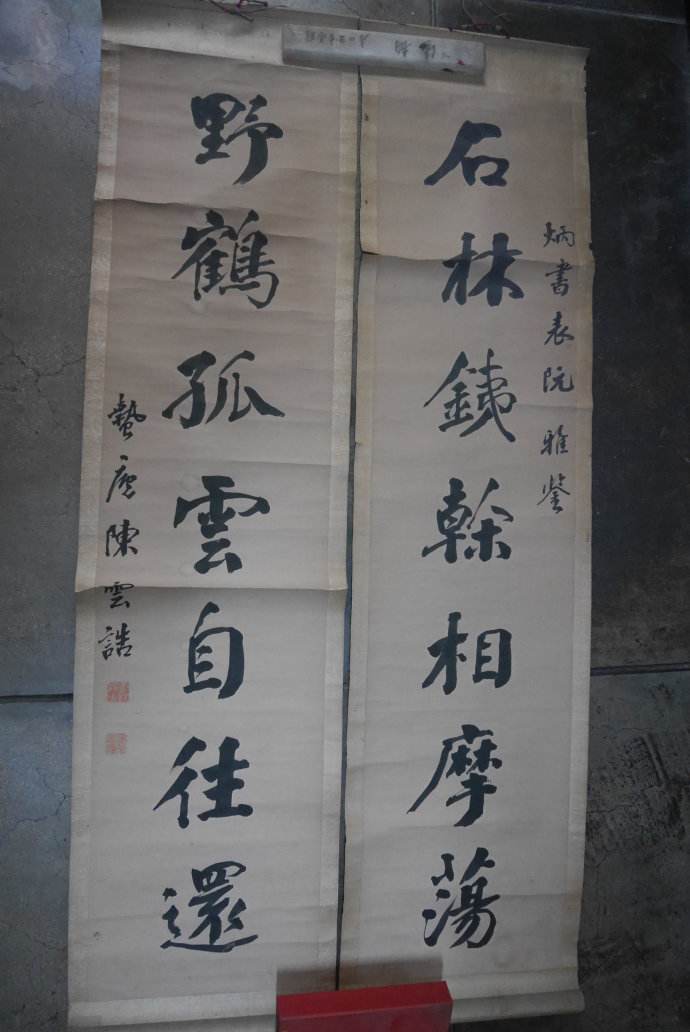 炳書表阮雅鑒
石林銕榦相摩蕩
野鶴孤雲自往還
蟄廬陳雲誥